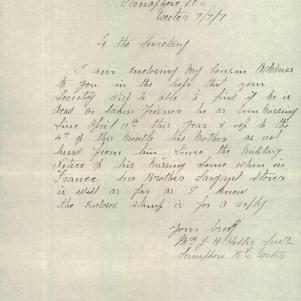 Semaphore Rd
Exeter 7/7/17
To the Secretary
I am enclosing my Cousin Address
to you in the hope that your
Society will be able to find if he is
Dead or taken Prisoner he as been missing
Since April 11th this Year & up to the
4th of this month his Mother as not
heard from him Since the Military
Notice of his Missing Some where in
France his Brother Sargant Storer
is well as far as I know
the enclosed stamp is for a reply
Yours
Mrs J H
Semaphore Rd Exeter